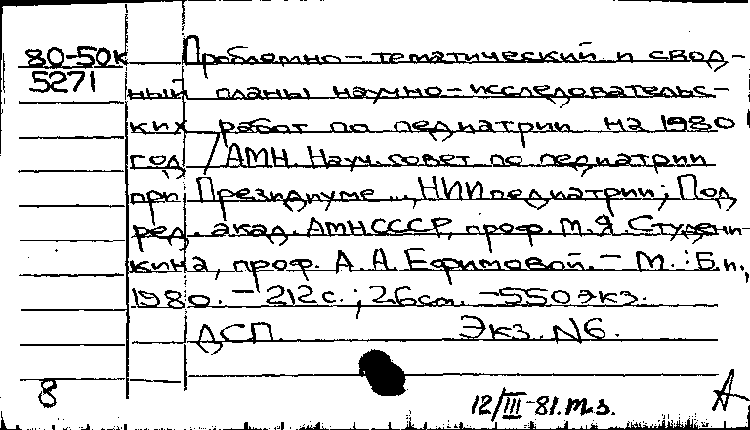 80-50к Проблемно-тематический и свод-
5271 ный планы научно-исследовательс-
ких работ по педиатрии на 1980
год / АМН. Науч. совет по педиатрии
при Президиуме..., НИИ педиатрии; Под
ред. акад. АМН СССР, проф. М.Я. Студени-
кина, проф. А.А. Ефимовой. - М.: Б.и.,
1980. - 212с.; 26см. - 550 экз.
ДСП. Экз. N6.
8 12/III-81.т.з. А